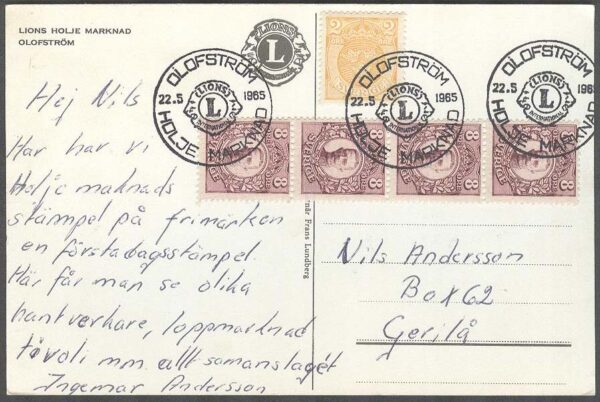 LIONS HOLJE MARKNAD
OLOFSTRÖM
LIONS
L
2
OLOFSTRÖM
22.5 1965
LIONS
L
INTERNATIONAL
HOLJE MARKNAD
OLOFSTRÖM
22.5 1965
LIONS
L
INTERNATIONAL
HOLJE MARKNAD
OLOFSTRÖM
22.5 1965
LIONS
L
INTERNATIONAL
HOLJE MARKNAD
8 SVERIGE
8 SVERIGE
8 SVERIGE
8 SVERIGE
Hej Nils
Här har vi
Holje maknads
stämpel på frimärken
en förstadagsstämpel.
Här får man se olika
hantverkare, loppmarknad
tivoli mm allt samanslaget
Ingemar Andersson
Frans Lundberg
Nils Andersson
Box 62
Gerilå